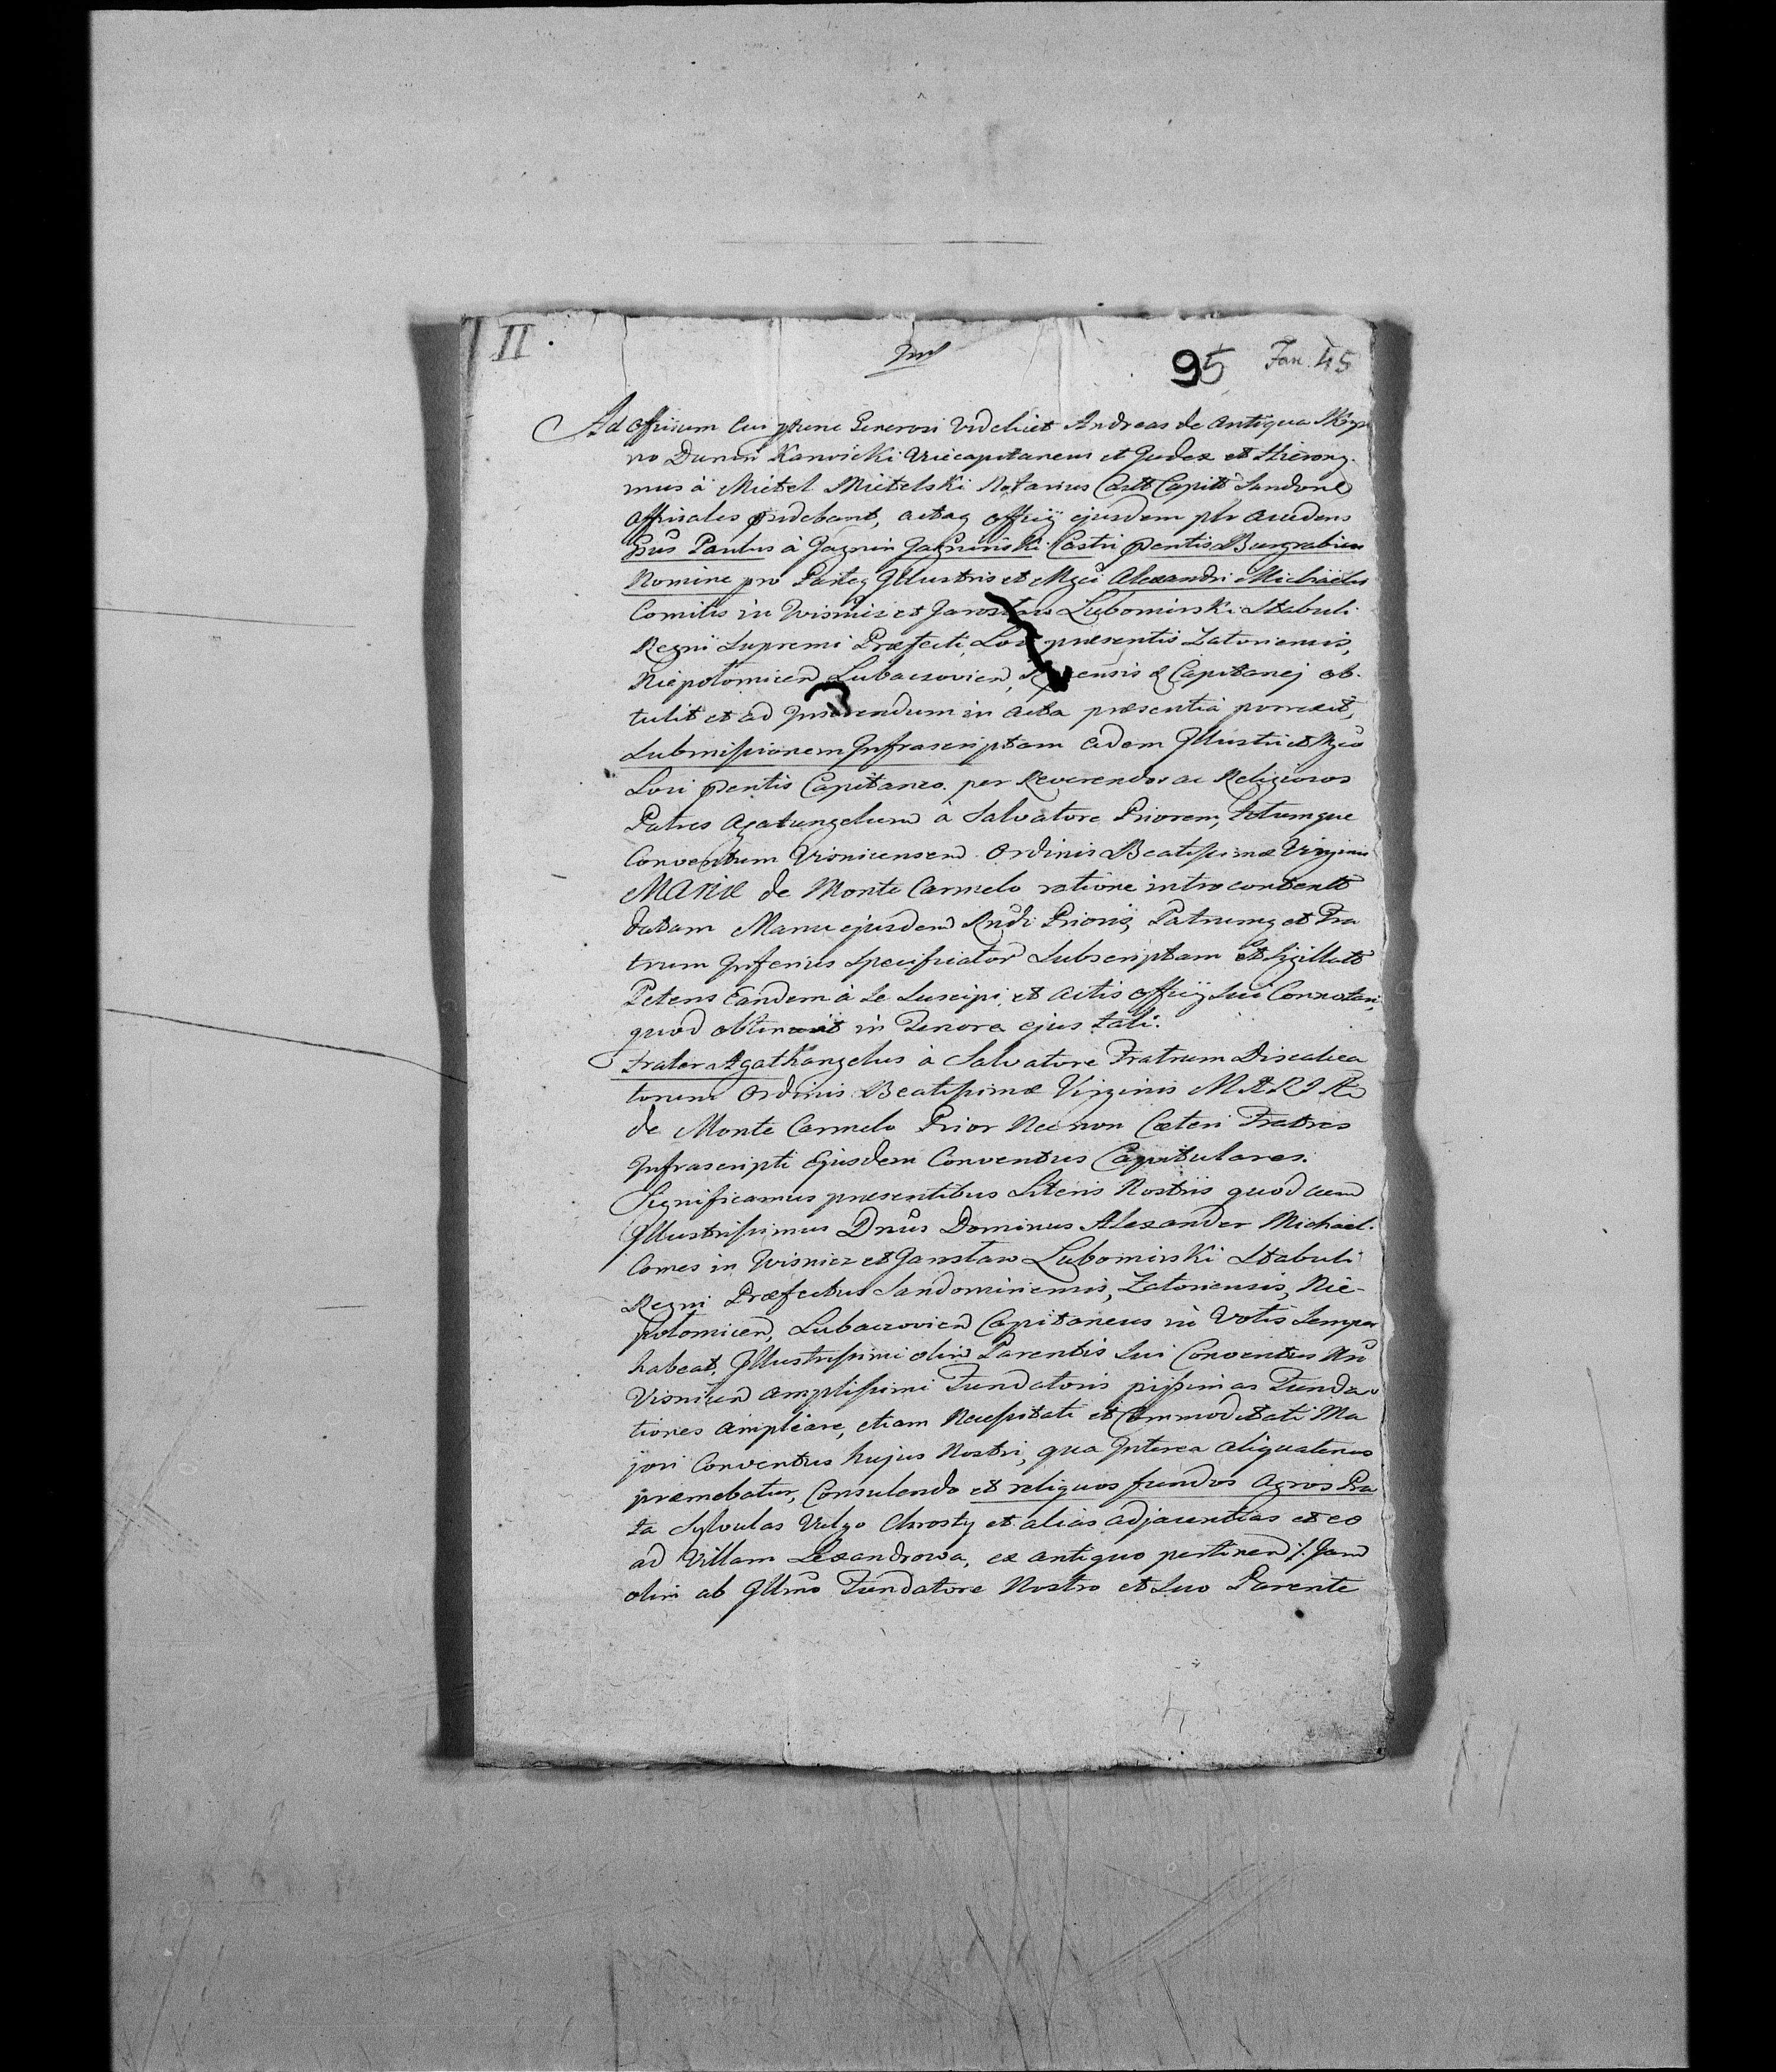 II.
95 Fan. 45
Ad Officium Cui ꝓtunc Generosi Videlicet Andreas de Antiqua Skrzyn
no Dunin Karwicki Vicecapitaneus et Judex et Hierony-
mus à Mietel Mietelski Notarius Castr Capitt Sandom
Officiales ꝓsidebant, actaq Officij ejusdem ꝑlr accedens
Gnūs Paulus à Jaznin Jaźninski Castri ꝓsentis Burgrabius
Nomine pro Parteq Illustris et Mgci Alexandri Michaelis
Comitis in Wisnicz et Jarosław Lubomirski Stabuli
Regni Supremi Præfecti, Loci præsentis Zatoriensis,
Niepolomicen Lubaczovien, &c Capitanej ob-
tulit et ad Inserendum in acta præsentia porrexit,
Submissionem Infrascriptam eidem Illustri et Mgco
Loci ꝓsentis Capitaneo per Reverendos ac Religiosos
Patres Agatangelum à Salvatore Priorem, totumque
Conventum Visnicensem Ordinis Beatissimæ Virginis
MARIÆ de Monte Carmelo ratione introcontentt
datam Manu ejusdem Rndi Prioris, Patrumq et Fra
trum Inferius Specificator Subscriptam et Sigillatt
Petens Eandem à Se Suscipi, et Actis Officij Sui Connotari,
quod obtinuit in Tenore ejus tali.
Frater Agathangelus à Salvatore Fratrum Discalcea
torum Ordinis Beatissimæ Virginis MARIÆ
de Monte Carmelo Prior Necnon Cæteri Fratres
Infrascripti Ejusdem Conventus Capitulares.
Significamus præsentibus Literis Nostris quod cum
Illustrissimus Dnūs Dominus Alexander Michael
Comes in Wisnicz et Jarosław Lubomirski Stabuli
Regni Præfectus Sandomiriensis, Zatoriensis, Nie-
polomicen, Lubaczovien Capitaneus in Votis Semper
habeat, Illustrissimi olim Parentis Sui Conventus Nri
Visnicen amplissimi Fundatoris piissimas Funda-
tiones ampliare, etiam Necessitati et Commoditati Ma
jori Conventus hujus Nostri, qua Interea aliquatenus
præmebatur, Consulendo et reliquos fundos Agros Pra
ta Sylvulas Vulgo Chrosty et alias adjacentias et eo
ad Villam Lexandrowa, ex antiquo pertinen /. Jam
olim ab Illmo Fundatore Nostro et Suo Parente